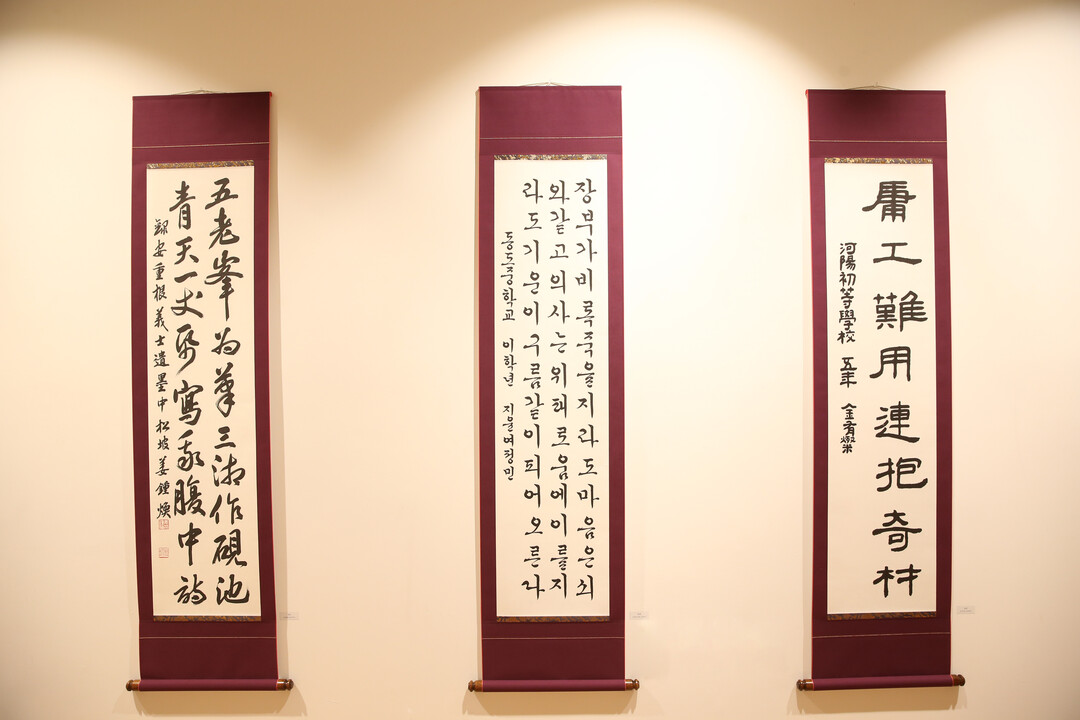 五老峯為筆三湘作硯池
青天一丈紙寫我腹中詩
錄安重根義士遺墨中松坡姜鍾煥
장부가비록죽을지라도마음은쇠
와같고의사는위태로움에이를지
라도기운이구름같이피어오른다
동도중학교 이학년 지율여정민
庸工難用連抱奇材
河陽初等學校 五年 金有燦